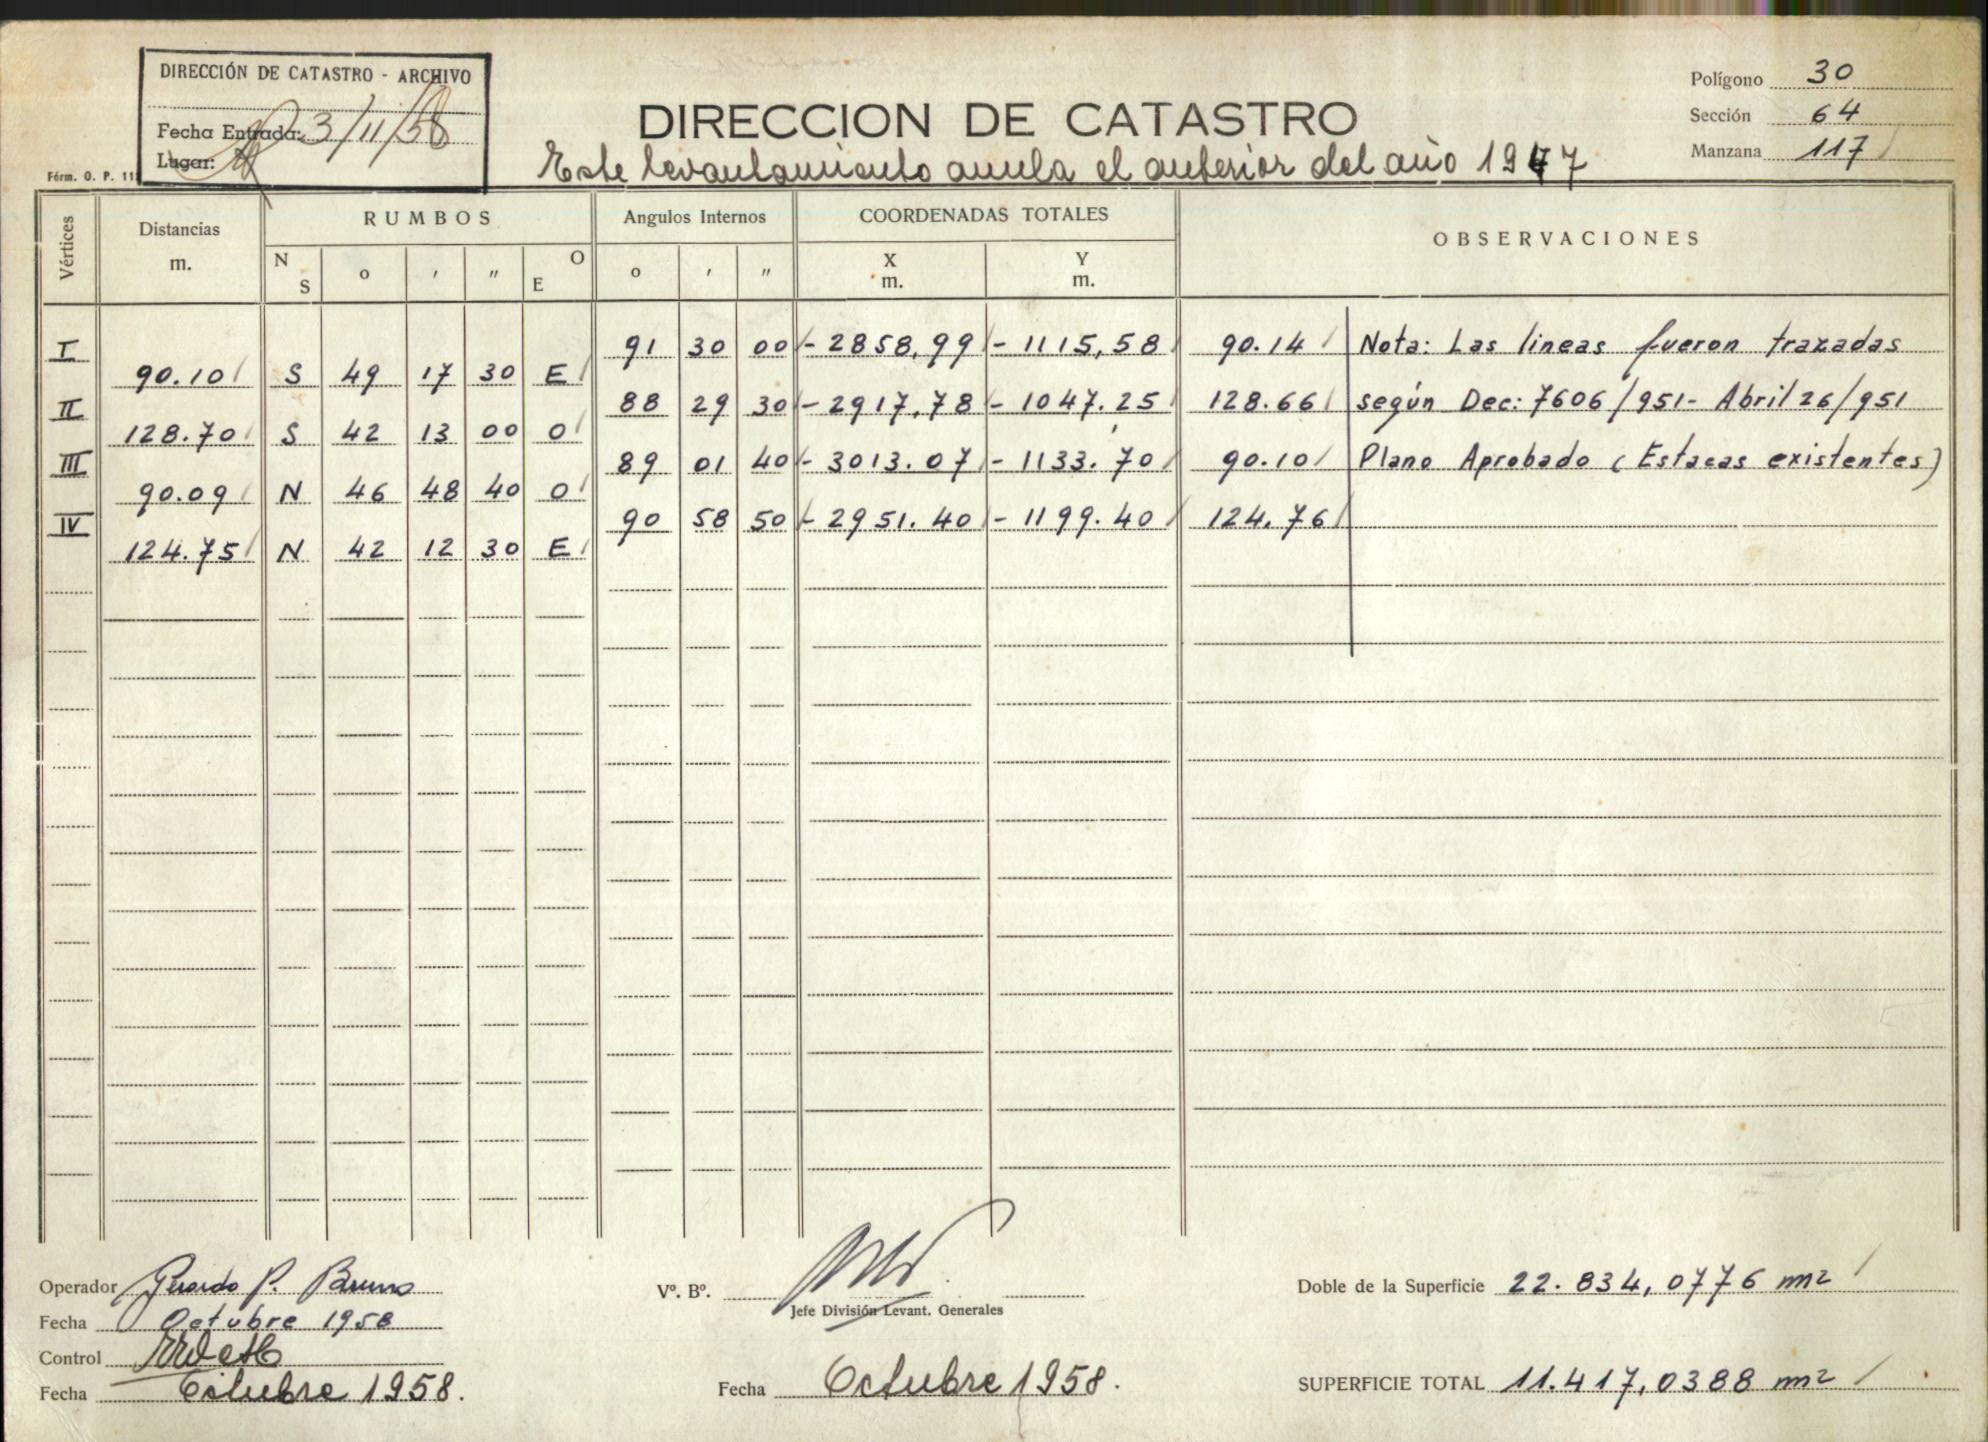 DIRECCIÓN DE CATASTRO - ARCHIVO
Fecha Entrada: 3/11/58
Lugar:
Fórm. O. P. 11
DIRECCION DE CATASTRO
Este levantamiento anula el anterior del año 1947
Polígono 30
Sección 64
Manzana 117
Vértices Distancias m. RUMBOS Angulos Internos COORDENADAS TOTALES OBSERVACIONES
N S o ' " O E o ' " X m. Y m.
I 91 30 00 - 2858,99 - 1115,58 90.14 Nota: Las lineas fueron trazadas
90.10 S 49 17 30 E
II 88 29 30 - 2917,78 - 1047.25 128.66 según Dec: 7606/951- Abril 26/951
128.70 S 42 13 00 O
III 89 01 40 - 3013.07 - 1133.70 90.10 Plano Aprobado (Estacas existentes)
90.09 N 46 48 40 O
IV 90 58 50 - 2951.40 - 1199.40 124.76
124.75 N 42 12 30 E
Operador Gerardo P. Bruno
Fecha Octubre 1958
Control
Fecha Octubre 1958.
Vº. Bº.
Jefe División Levant. Generales
Fecha Octubre 1958.
Doble de la Superficie 22.834,0776 m2
SUPERFICIE TOTAL 11.417,0388 m2